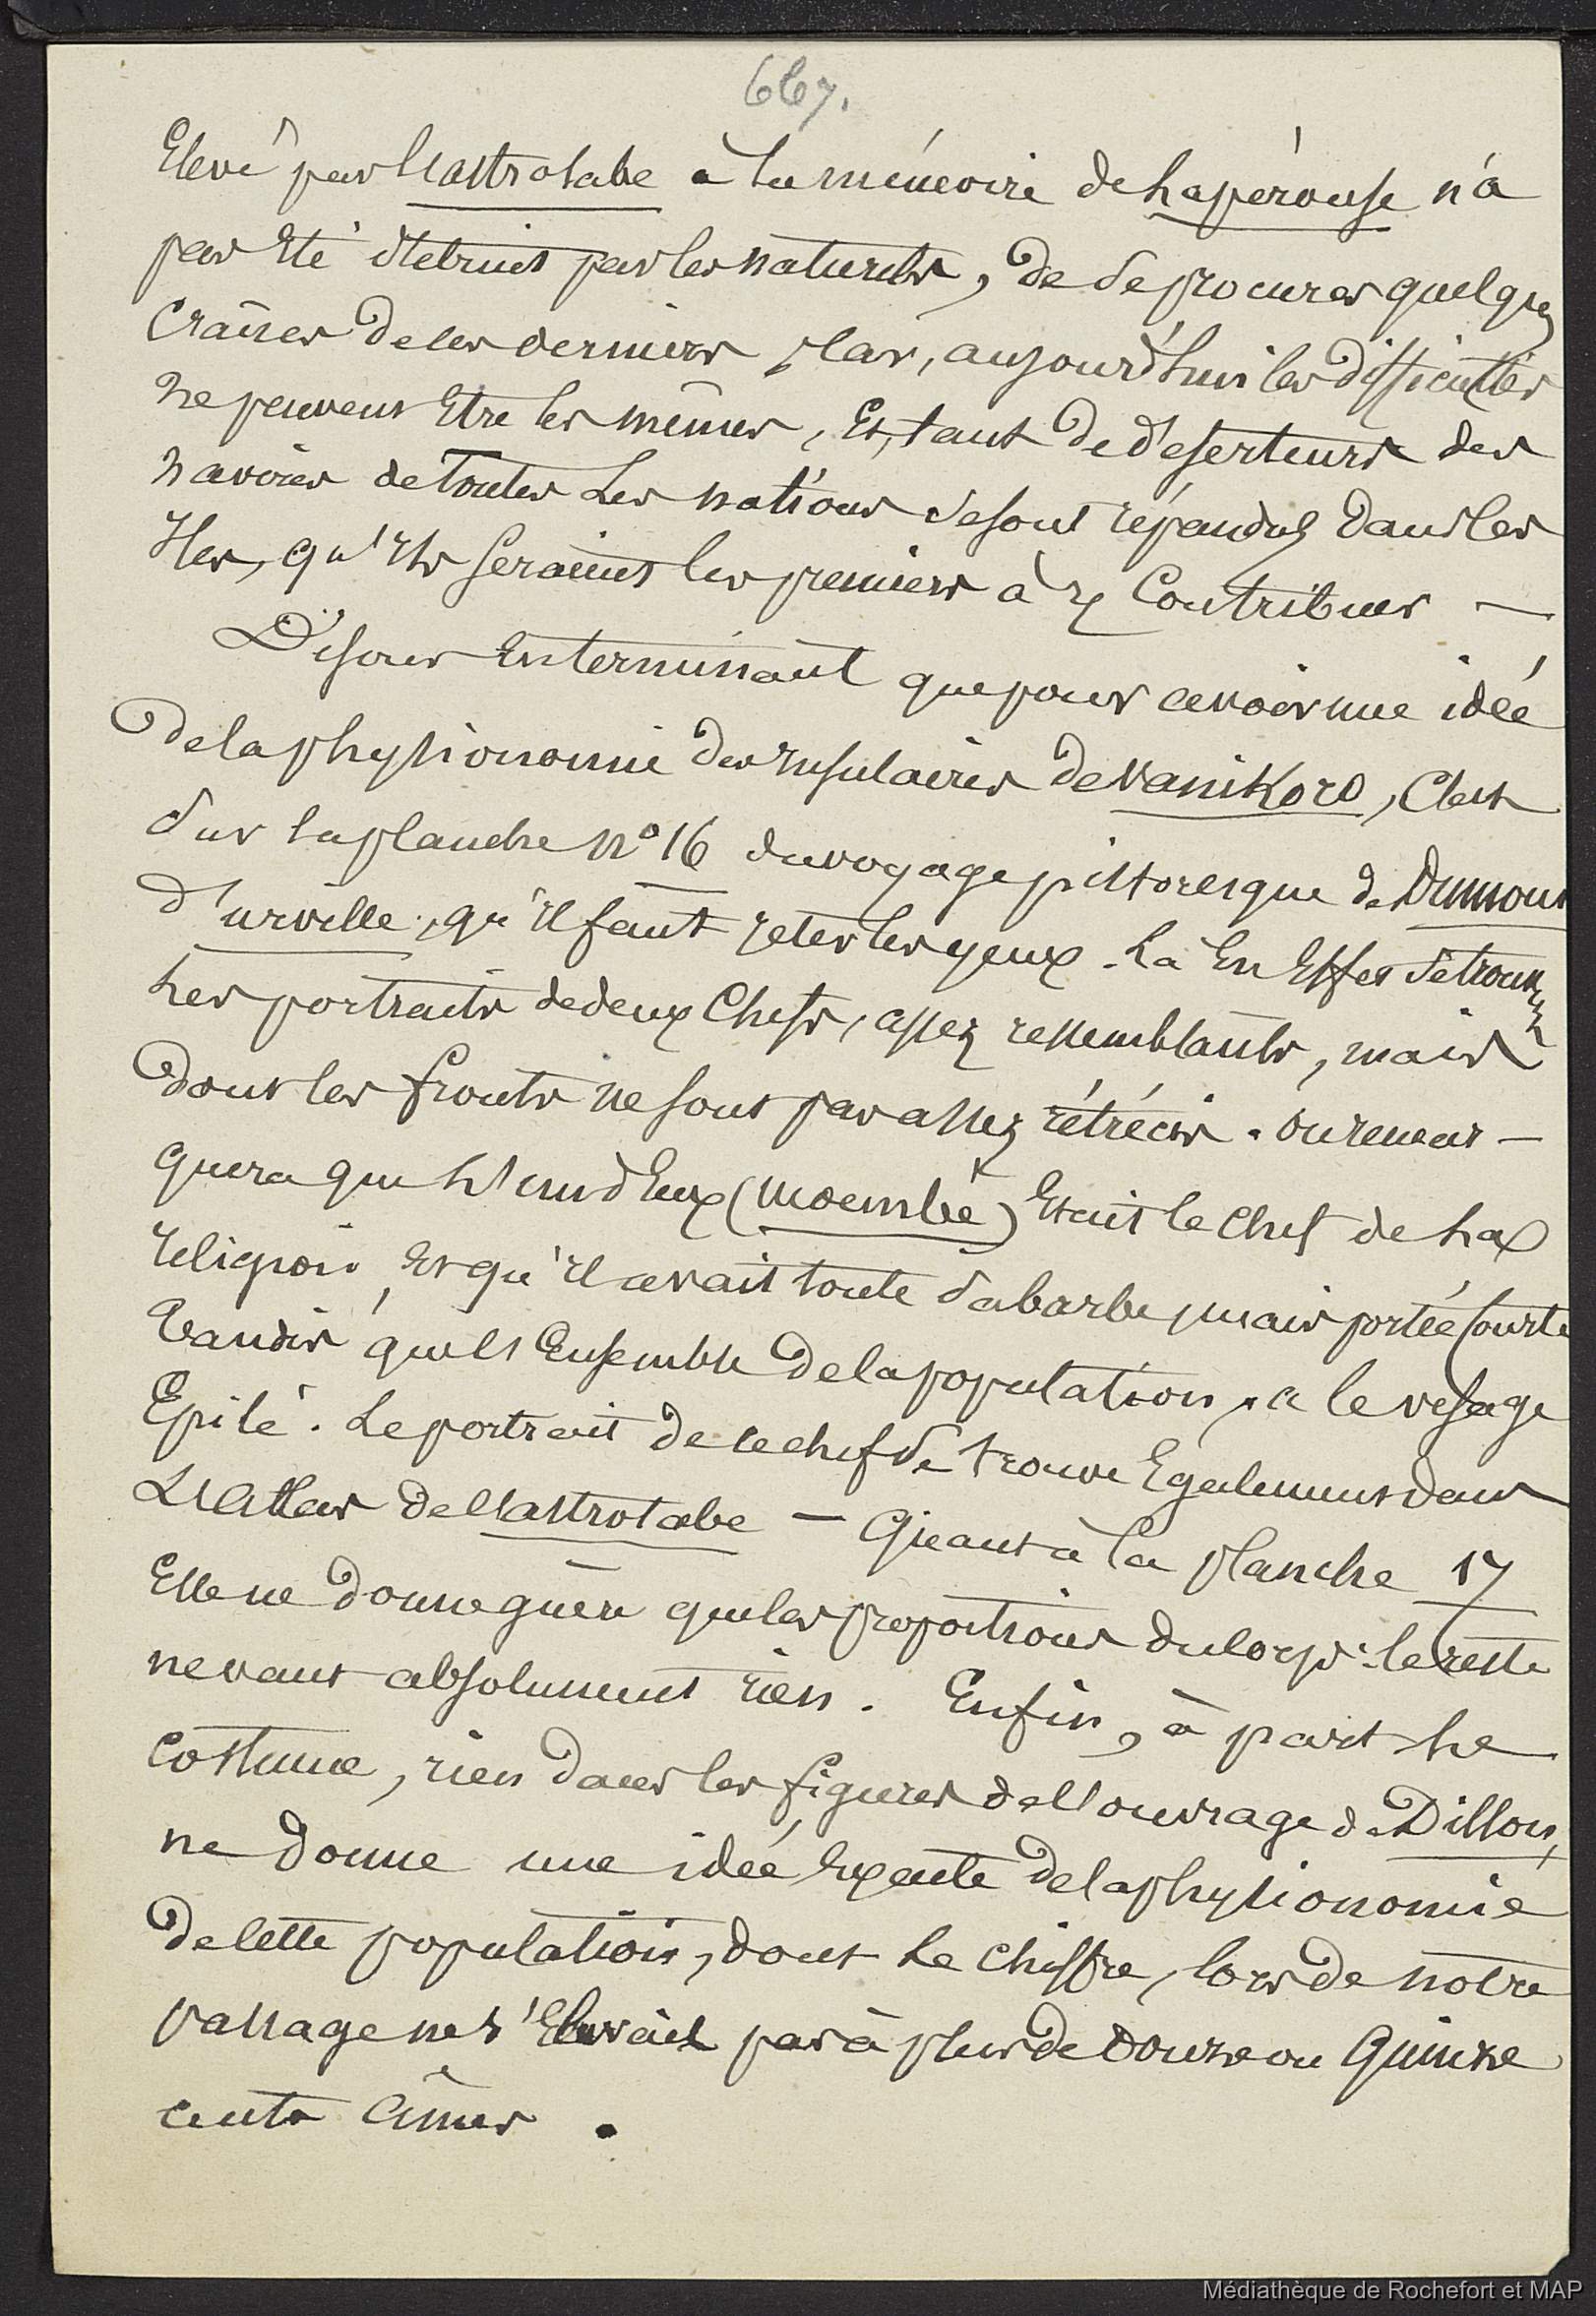 667.
Elevé par l'astrolabe à la mémoire de Lapérouse n'a
pas Eté détruit par les naturels, de se procurer quelques
Crânes de ces derniers ; car, aujourd'hui les difficultés
ne peuvent Etre les mêmes, Et, tant de déserteurs des
navires de toutes Les nations se sont répandus dans les
Iles, qu'ils seraient les premiers à y Contribuer —
Disons En terminant que pour avoir une idée
de la physionomie des insulaires de Vanikoro, C'est
sur la planche n° 16 du voyage pittoresque de Dumont
d'urville, qu'il faut jeter les yeux. Là En Effet se trouvent
Les portraits de deux Chefs, assez ressemblants, mais
dont les fronts ne sont pas assez rétrécis. On remar-
quera que L'un d'Eux (moembé) Etait le Chef de La
religion, Et qu'il avait toute sa barbe, mais portée Courte
tandis que l'Ensemble de la population, a le visage
Epilé. Le portrait de ce chef se trouve Egalement dans
L'Atlas de l'astrolabe — Quant à la planche 17
Elle ne donne guère que les proportions du corps : le reste
ne vaut absolument rien. Enfin, à part Le
costume, rien dans les figures de l'ouvrage de Dillon,
ne donne une idée Exacte de la physionomie
de cette population, dont Le Chiffre, lors de notre
passage ne s'Elevait pas à plus de douze ou Quinze
cents âmes.
Médiathèque de Rochefort et MAP